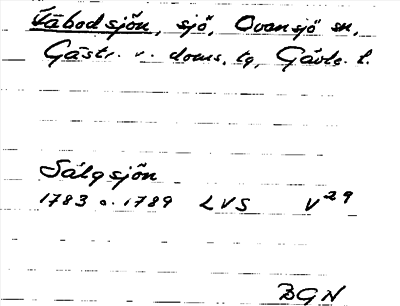 Fäbodsjön, sjö, Ovansjö sn,
Gästr. v. doms. tg, Gävle. l.
Sälgsjön
1783 o. 1789 LVS V 29
BGN